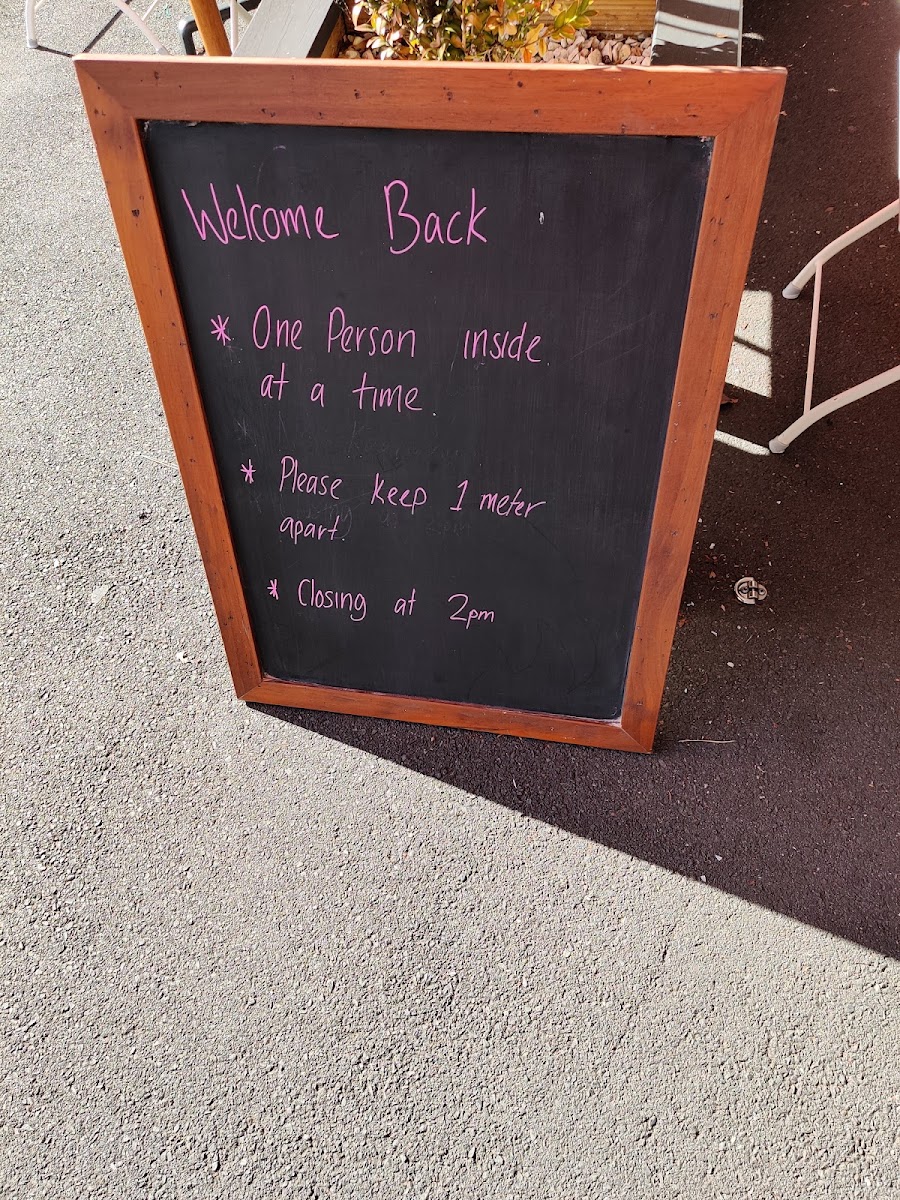 Welcome Back
* One Person inside
at a time.
* Please keep 1 meter
apart.
* Closing at 2pm